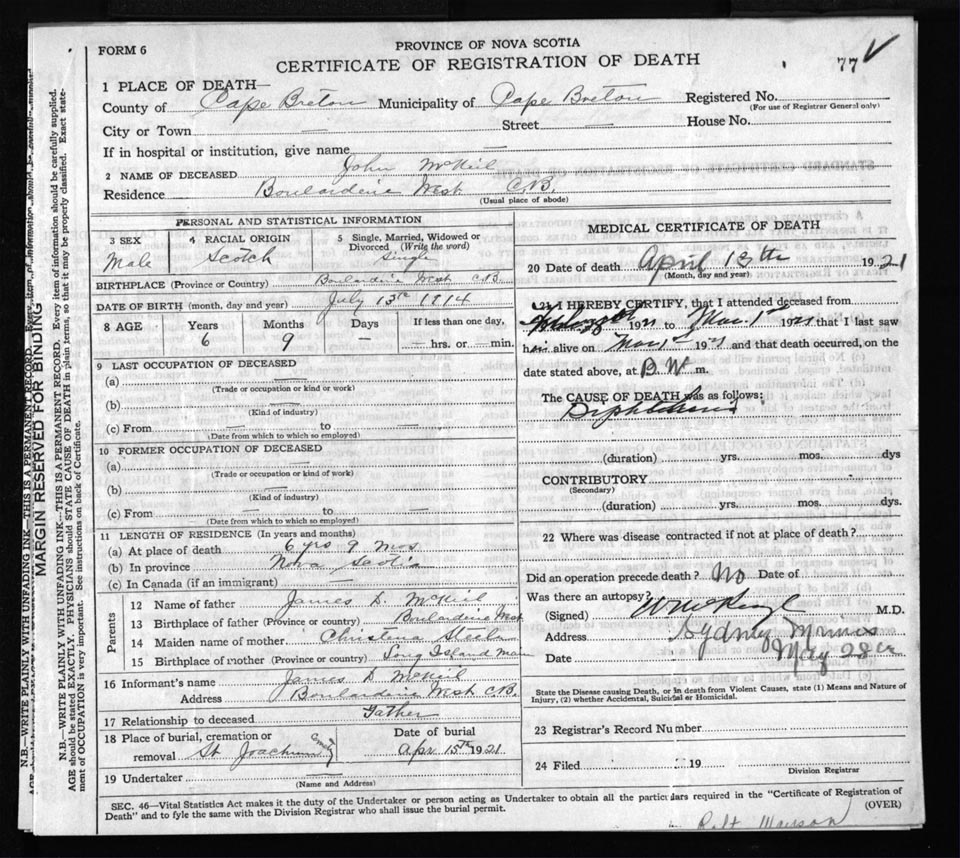 FORM 6
PROVINCE OF NOVA SCOTIA
CERTIFICATE OF REGISTRATION OF DEATH
77
1 PLACE OF DEATH—
County of Cape Breton Municipality of Cape Breton Registered No.
(For use of Registrar General only)
City or Town — Street — House No.
If in hospital or institution, give name —
2 NAME OF DECEASED John McNeil
Residence Boularderie West C.B.
(Usual place of abode)
PERSONAL AND STATISTICAL INFORMATION
3 SEX Male
4 RACIAL ORIGIN Scotch
5 Single, Married, Widowed or Divorced (Write the word) Single
BIRTHPLACE (Province or Country) Boularderie West C.B.
DATE OF BIRTH (month, day and year) July 13th 1914
8 AGE Years Months Days If less than one day,
6 9 — — hrs. or — min.
9 LAST OCCUPATION OF DECEASED
(a) —
(Trade or occupation or kind or work)
(b) —
(Kind of industry)
(c) From — to —
(Date from which to which so employed)
10 FORMER OCCUPATION OF DECEASED
(a) —
(Trade or occupation or kind of work)
(b) —
(Kind of industry)
(c) From — to —
(Date from which to which so employed)
11 LENGTH OF RESIDENCE (In years and months)
(a) At place of death 6 yrs 9 mos
(b) In province Nova Scotia
(c) In Canada (if an immigrant) —
Parents
12 Name of father James D. McNeil
13 Birthplace of father (Province or country) Boularderie West
14 Maiden name of mother Christena
15 Birthplace of mother (Province or country) Long Island Main
16 Informant's name James D. McNeil
Address Boularderie West C.B.
17 Relationship to deceased Father
18 Place of burial, cremation or removal St Joachim Cemetery
Date of burial Apr 15th 1921
19 Undertaker —
(Name and Address)
MEDICAL CERTIFICATE OF DEATH
20 Date of death April 13th 1921
(Month, day and year)
21 I HEREBY CERTIFY, that I attended deceased from
1921 to Mar. 1st 1921 that I last saw
him alive on Mar 1st 1921 and that death occurred, on the
date stated above, at B.W m.
The CAUSE OF DEATH was as follows:
Diphtheria
(duration) yrs. mos. dys
CONTRIBUTORY
(Secondary)
(duration) yrs. mos. dys.
22 Where was disease contracted if not at place of death?
Did an operation precede death? No Date of
Was there an autopsy?
(Signed) M.D.
Address Sydney Mines
Date May 28th
State the Disease causing Death, or in death from Violent Causes, state (1) Means and Nature of
Injury, (2) whether Accidental, Suicidal or Homicidal.
23 Registrar's Record Number
24 Filed 19
Division Registrar
SEC. 46—Vital Statistics Act makes it the duty of the Undertaker or person acting as Undertaker to obtain all the particulars required in the "Certificate of Registration of
Death" and to fyle the same with the Division Registrar who shall issue the burial permit.
(OVER)
MARGIN RESERVED FOR BINDING
N.B.—WRITE PLAINLY WITH UNFADING INK—THIS IS A PERMANENT RECORD. Every item of information should be carefully supplied.
AGE should be stated EXACTLY. PHYSICIANS should STATE CAUSE OF DEATH in plain terms, so that it may be properly classified. Exact state-
ment of OCCUPATION is very important. See instructions on back of Certificate.